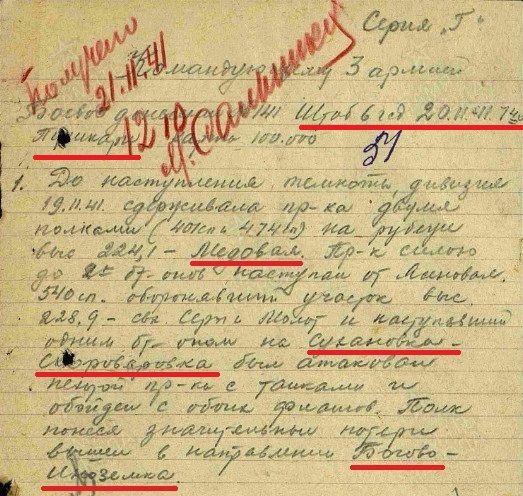 Серия "Г"
Получено
21.11.41
12.10
Командующему 3 армией
Боевое донесение №141 Штаб 6 гсд 20.11.41. 7
Пушкари карта 100.000
51
1. До наступления темноты, дивизия
19.11.41. сдерживала пр-ка двумя
полками (401сп и 474сп) на рубеже
выс 224,1 - Медовая. Пр-к силою
до 2х бт-онов наступал от Липовая.
540сп. оборонявший участок выс.
228.9 - свх. Серп и Молот и наступавший
одним бт-оном на Сухановка-
был атакован
пехотой пр-ка с танками и
обойден с обоих флангов. Полк
понеся значительные потери
вышел в направлении Богово-
Иноземка.